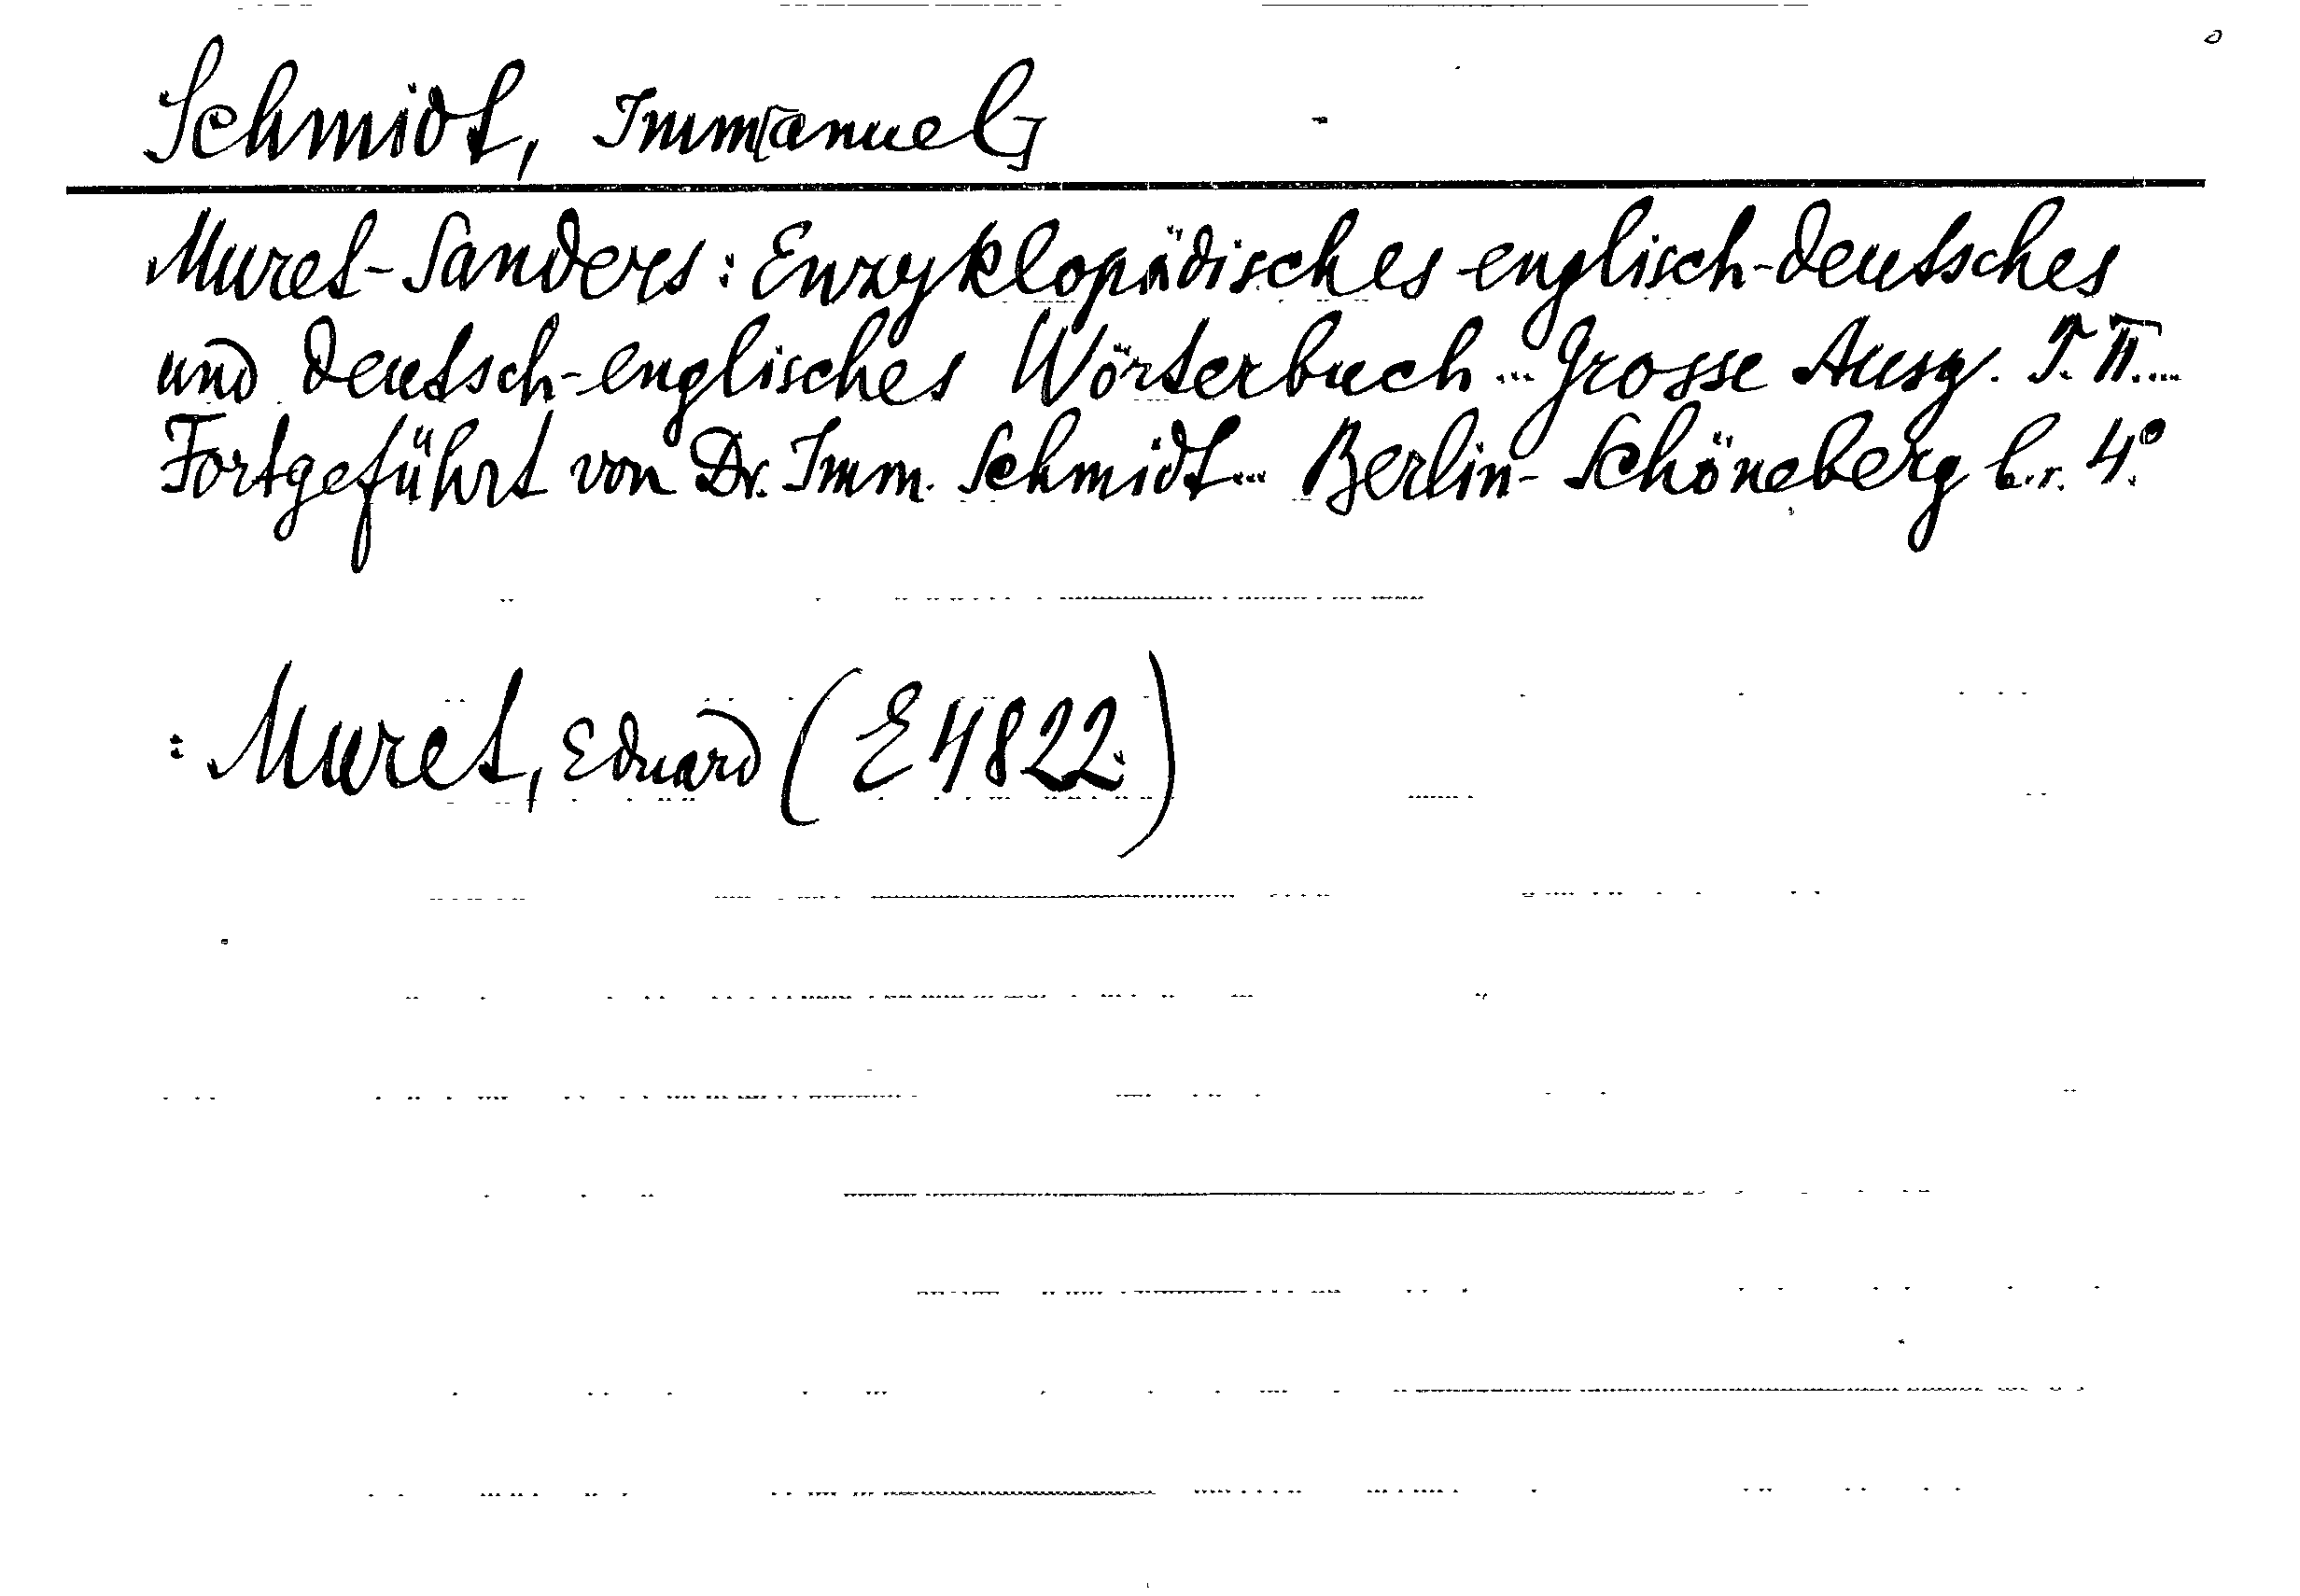 Schmidt, Imm[anuel]
Muret-Sanders: Enzyklopädisches englisch-deutsches
und deutsch-englisches Wörterbuch... Grosse Ausg. T. II....
Fortgeführt von Dr. Imm. Schmidt... Berlin-Schöneberg b.r. 4º.
: Muret, Eduard (E 4822.)